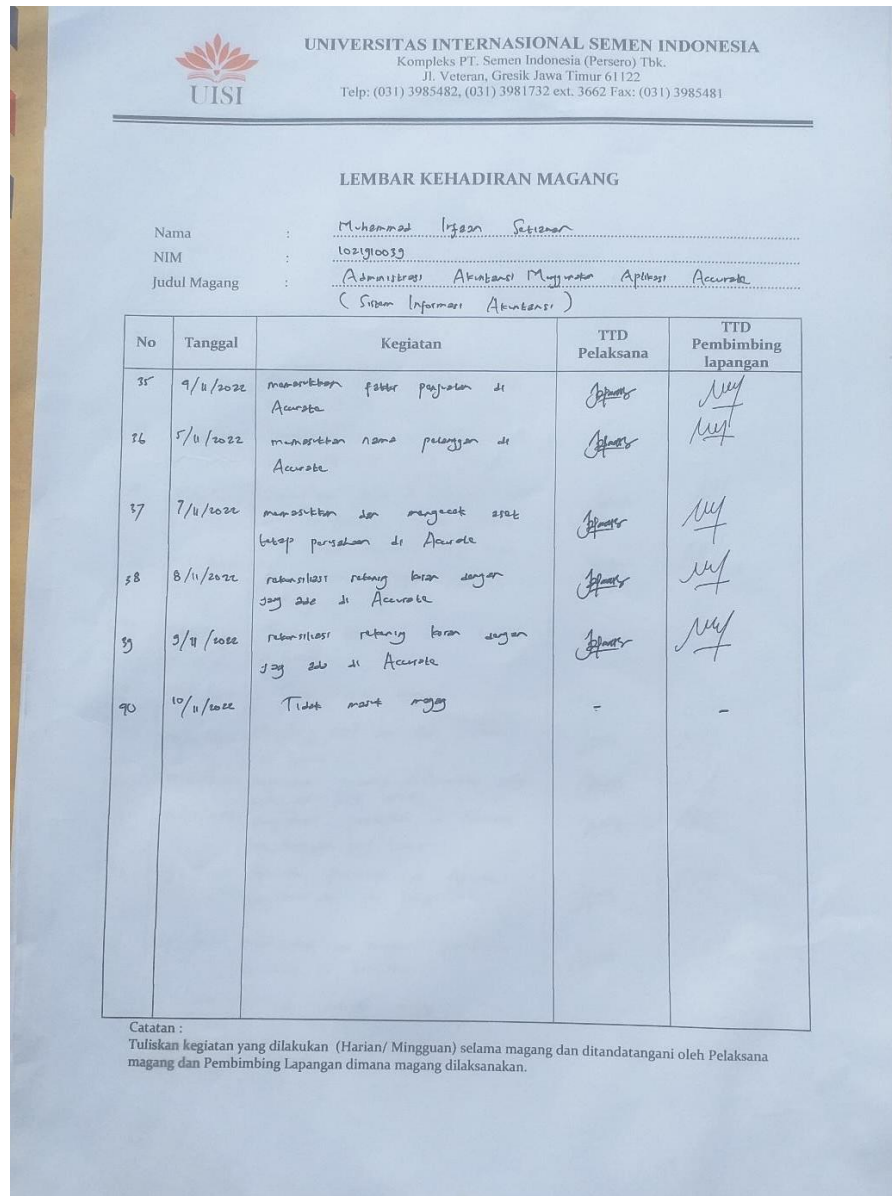 UISI
UNIVERSITAS INTERNASIONAL SEMEN INDONESIA
Kompleks PT. Semen Indonesia (Persero) Tbk.
Jl. Veteran, Gresik Jawa Timur 61122
Telp: (031) 3985482, (031) 3981732 ext. 3662 Fax: (031) 3985481
LEMBAR KEHADIRAN MAGANG
Nama : Muhammad Irfaan Setiawan
NIM : 1021910039
Judul Magang : Administrasi Akuntansi Menggunakan Aplikasi Accurate
(Sistem Informasi Akuntansi)
No Tanggal Kegiatan TTD Pelaksana TTD Pembimbing lapangan
35 4/11/2022 memasukkan faktur penjualan di
Accurate
36 5/11/2022 memasukkan nama pelanggan di
Accurate
37 7/11/2022 memasukkan dan mengecek aset
tetap perusahaan di Accurate
38 8/11/2022 rekonsiliasi rekening koran dengan
yang ada di Accurate
39 9/11/2022 rekonsiliasi rekening koran dengan
yang ada di Accurate
40 10/11/2022 Tidak masuk magang - -
Catatan :
Tuliskan kegiatan yang dilakukan (Harian/ Mingguan) selama magang dan ditandatangani oleh Pelaksana
magang dan Pembimbing Lapangan dimana magang dilaksanakan.